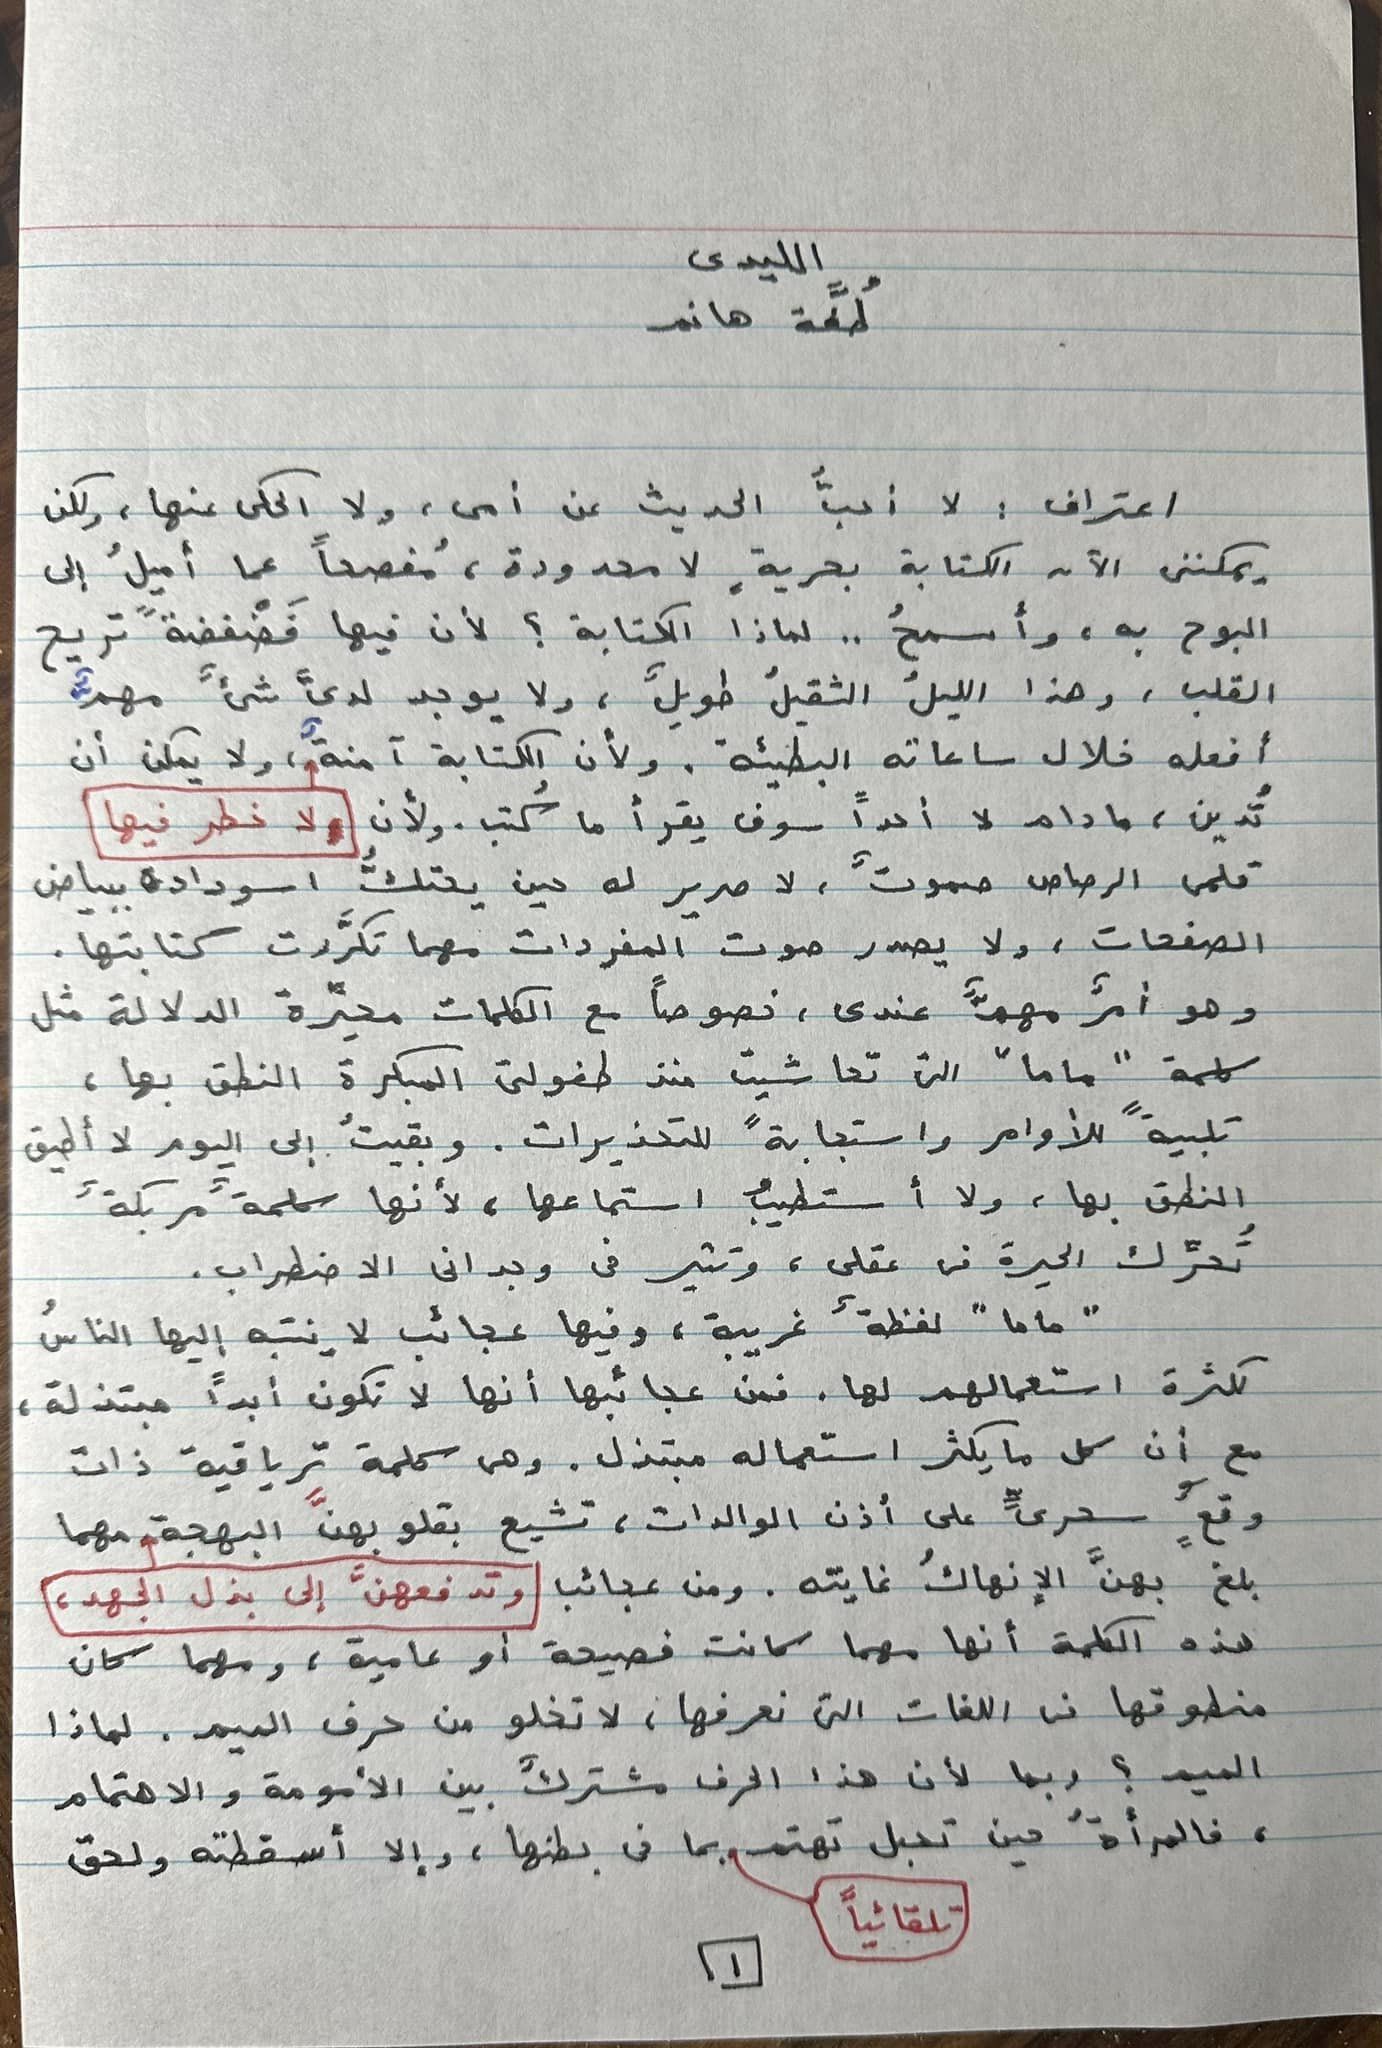 الليدى
طُمَّة هانم
اعتراف : لا أحبُّ الحديث عن أمى، ولا الحكى عنها، ولكن
يمكننى الآن الكتابة بحريةٍ لا محدودة، مُفصحاً عما أميلُ إلى
البوح به، وأسمحُ .. لماذا الكتابة ؟ لأن فيها فَضْفضةً تريح
القلب، وهذا الليلُ الثقيلُ طويلٌ، ولا يوجد لدىَّ شىءٌ مهمٌّ
أفعله خلال ساعاته البطيئة. ولأن الكتابة آمنةٌ، ولا يمكن أن
تُدين، مادام لا أحداً سوف يقرأ ما كُتب. ولأن
لا خطر فيها
قلمى الرصاص صموتٌ، لا صرير له حين يحتكُّ اسوداده ببياض
الصفحات، ولا يصدر صوت المفردات مهما تكرَّرت كتابتها.
وهو أمرٌ مهمٌّ عندى، خصوصاً مع الكلمات محيِّرة الدلالة مثل
كلمة "ماما" التى تحاشيت منذ طفولتى المبكرة النطق بها،
تلبيةً للأوامر واستجابةً للتحذيرات. وبقيتُ إلى اليوم لا أطيق
النطق بها، ولا أستطيبُ استماعها، لأنها كلمةٌ مربكةٌ
تُحرِّك الحيرة فى عقلى، وتثير فى وجدانى الاضطراب.
"ماما" لفظةٌ غريبة، وفيها عجائب لا ينتبه إليها الناسُ
لكثرة استعمالهم لها. فمن عجائبها أنها لا تكون أبداً مبتذلة،
مع أن كل ما يكثر استعماله مبتذل. وهى كلمة ترياقية ذات
وقعٍ سحرىٍّ على أذن الوالدات، تشيع بقلوبهنَّ البهجة مهما
وتدفعهنَّ إلى بذل الجهد،
بلغ بهنَّ الإنهاكُ غايته. ومن عجائب
هذه الكلمة أنها مهما كانت فصيحة أو عامية، ومهما كان
منطوقها فى اللغات التى نعرفها، لا تخلو من حرف الميم. لماذا
الميم ؟ ربما لأن هذا الحرف مشتركٌ بين الأمومة والاهتمام
، فالمرأةُ حين تحبل تهتم بما فى بطنها، وإلا أسقطته ولحق
تلقائياً
١